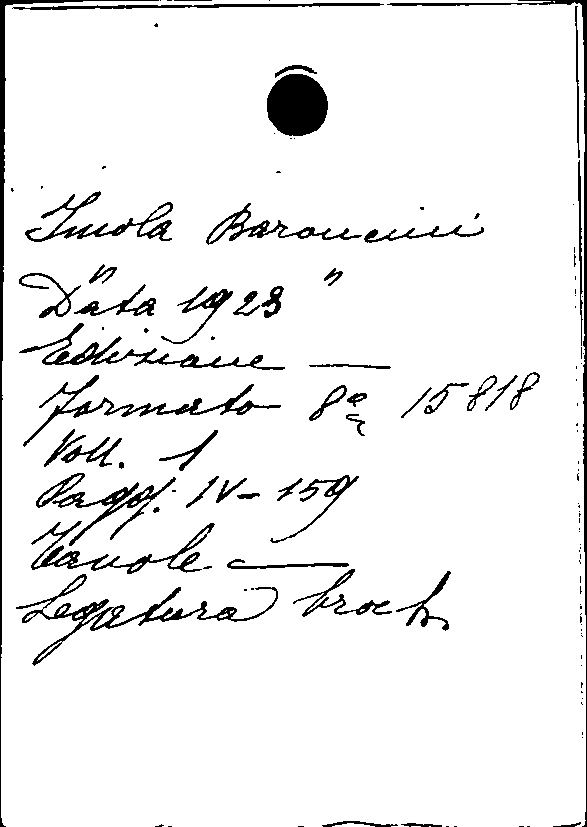 Imola Baroncini
" "
Data 1923
Edizione —
Formato 8º 15818
Voll. 1
Pagg. IV - 159
Tavole —
Legatura broch.